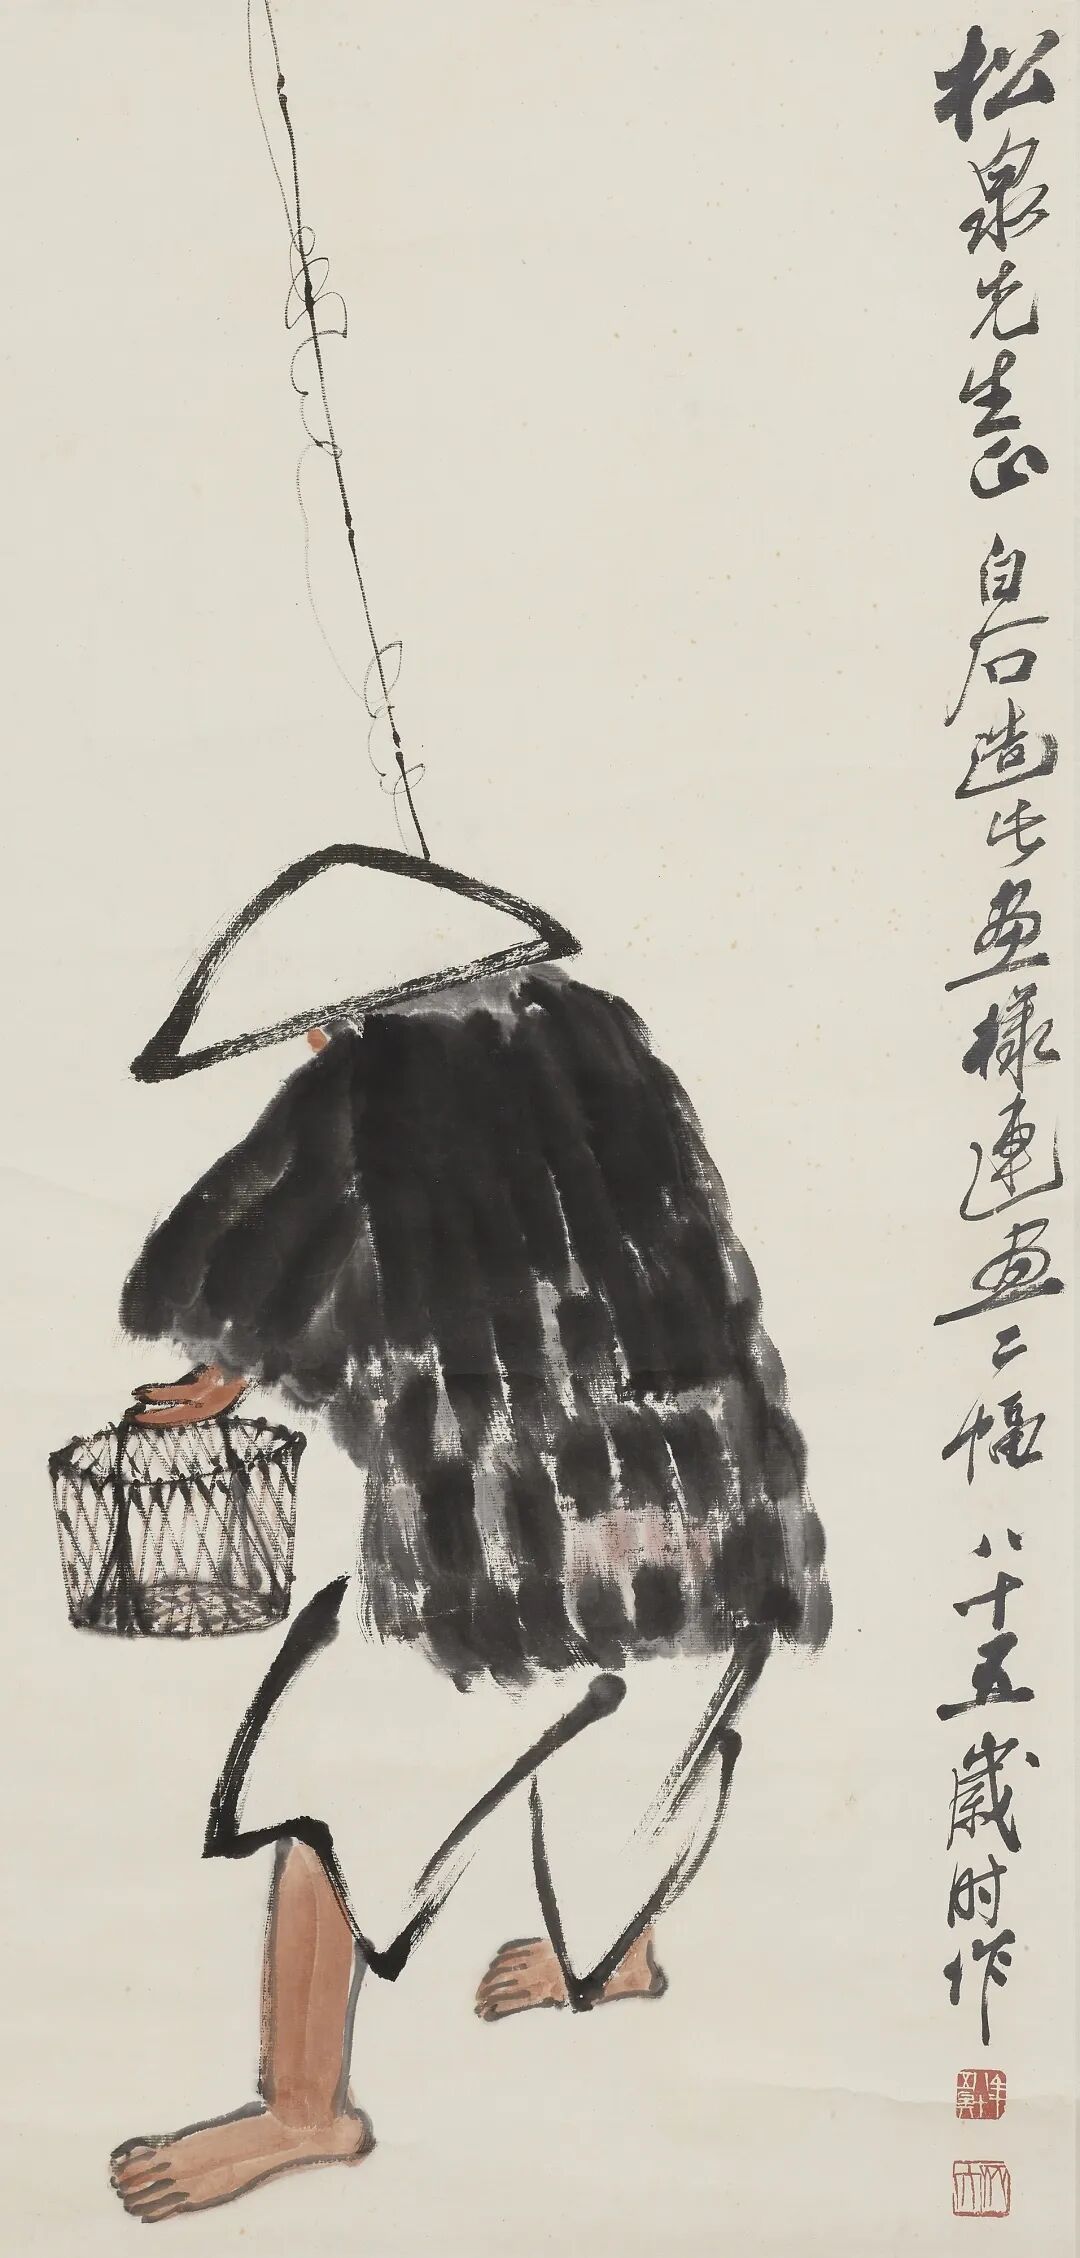 松泉先生正 白石造此画样连画二幅 八十五岁时作